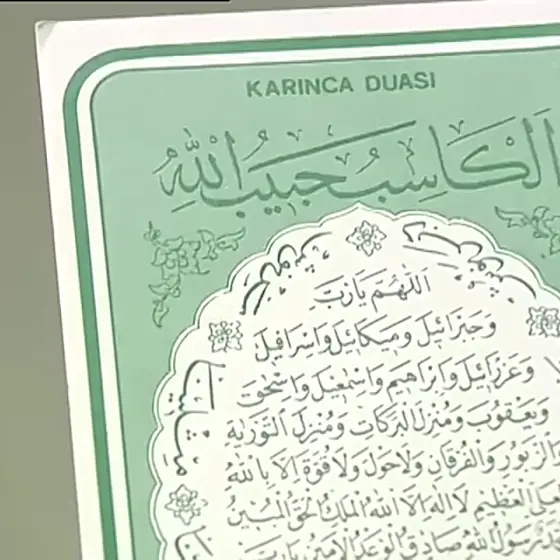 KARINCA DUASI
اَلْكَاسِبُ حَبِيبُ اللهِ
اَللّٰهُمَّ يَارَبَّ
وَجَبْرَائِيلَ وَمِيكَائِيلَ وَاِسْرَافِيلَ
وَعَزْرَائِيلَ وَاِبْرَاهِيمَ وَاِسْمٰعِيلَ وَاِسْحٰقَ
وَيَعْقُوبَ وَمُنْزِلَ الْبَرَكَاتِ وَمُنْزِلَ التَّوْرٰيةِ
وَالزَّبُورِ وَالْفُرْقَانِ وَلَاحَوْلَ وَلَا قُوَّةَ اِلَّا بِاللّٰهِ
الْعَظِيمِ لَا اِلٰهَ اِلَّا اللّٰهُ الْمَلِكُ الْحَقُّ الْمُبِينُ
رَسُولُ اللّٰهِ صَادِقُ الْوَعْدِ الْاَمِينُ يَارَبِّ